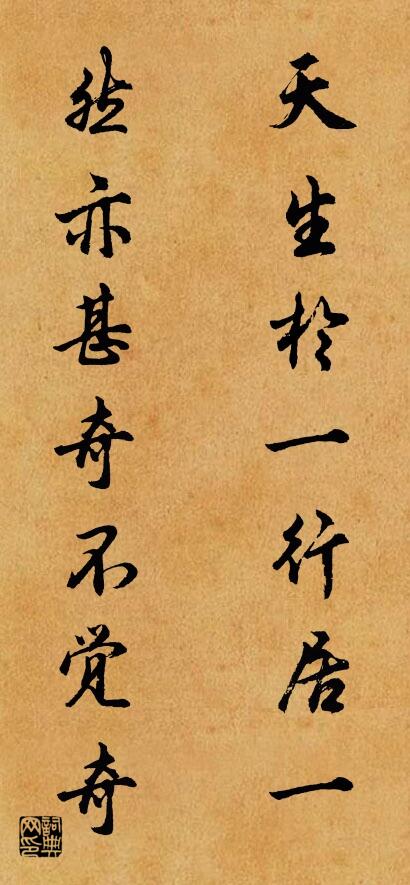 天生於一行居一
然亦甚奇不觉奇
詞典网印